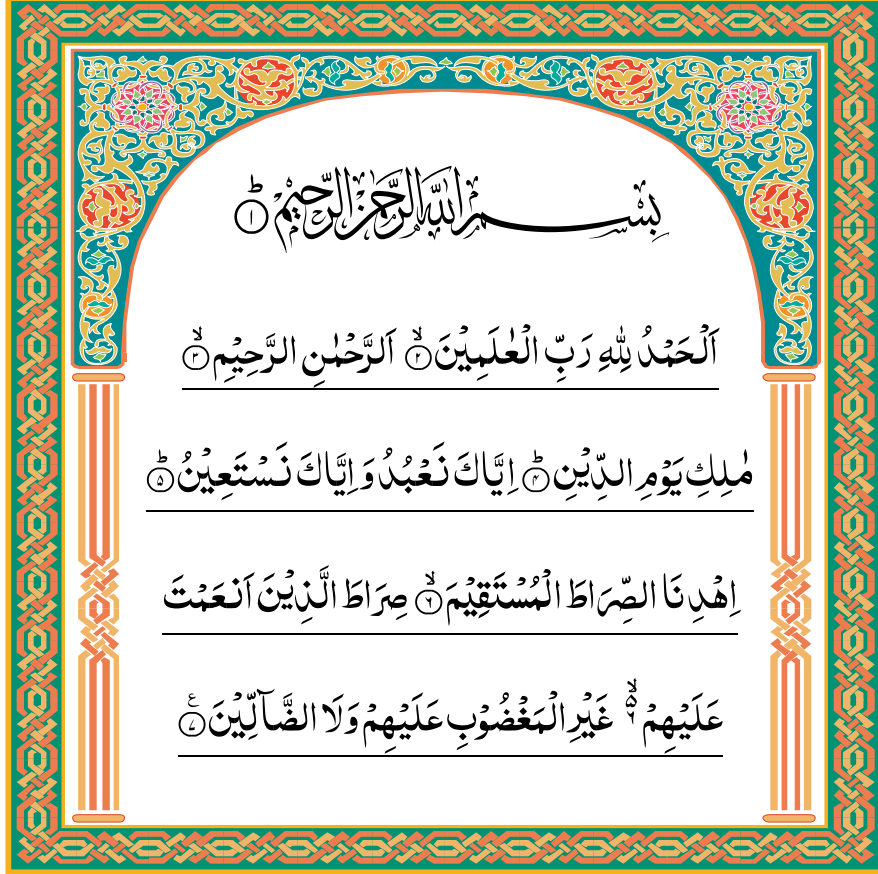 بِسْمِ اللّٰهِ الرَّحْمٰنِ الرَّحِيْمِ ؕ﴿۱﴾
اَلْحَمْدُ لِلّٰهِ رَبِّ الْعٰلَمِيْنَ ۙ﴿۲﴾ الرَّحْمٰنِ الرَّحِيْمِ ۙ﴿۳﴾
مٰلِكِ يَوْمِ الدِّيْنِ ؕ﴿۴﴾ اِيَّاكَ نَعْبُدُ وَ اِيَّاكَ نَسْتَعِيْنُ ؕ﴿۵﴾
اِهْدِنَا الصِّرَاطَ الْمُسْتَقِيْمَ ۙ﴿۶﴾ صِرَاطَ الَّذِيْنَ اَنْعَمْتَ
عَلَيْهِمْ ۙ۬ۦ غَيْرِ الْمَغْضُوْبِ عَلَيْهِمْ وَلَا الضَّآلِّيْنَ ﴿۷﴾ ع